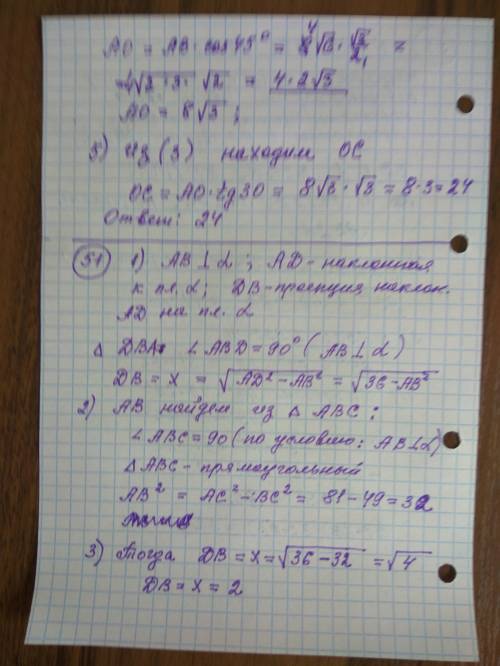 AO = AB · cos 45° = 8√6 · √2/2 =
4√2·3·√2 = 4·2√3
AO = 8√3 ;
3) Из (3) находим OC
OC = AO · tg 30 = 8√3 · √3 = 8·3 = 24
Ответ: 24
51 1) AB ⊥ α ; AD - наклонная
к пл. α; DB - проекция наклон.
AD на пл. α
Δ DBA: ∠ABD = 90° (AB ⊥ α)
DB = x = √AD² - AB² = √36 - AB²
2) AB найдем из Δ ABC:
∠ABC = 90 (по условию: AB ⊥ α)
Δ ABC - прямоугольный
AB² = AC² - BC² = 81 - 49 = 32
3) Тогда DB = x = √36 - 32 = √4
DB = x = 2